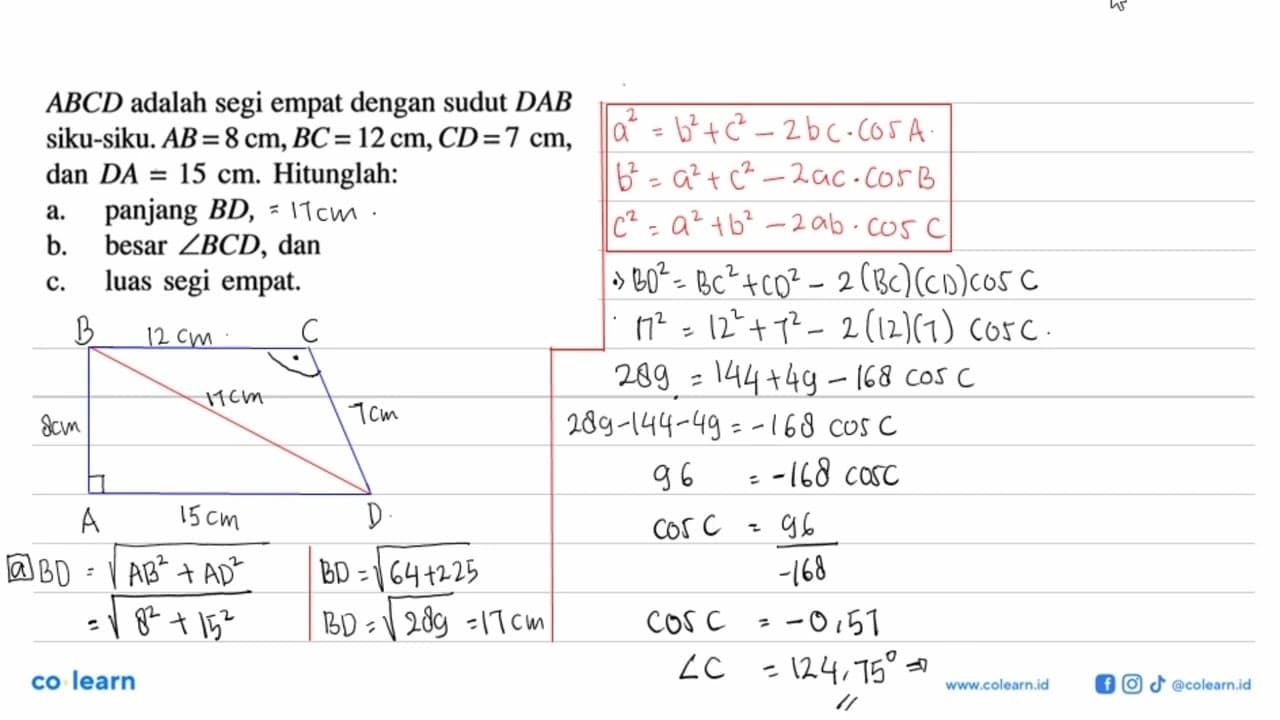 ABCD adalah segi empat dengan sudut DAB
siku-siku. AB = 8 cm, BC = 12 cm, CD = 7 cm,
dan DA = 15 cm. Hitunglah:
a. panjang BD, = 17 cm.
b. besar ∠BCD, dan
c. luas segi empat.
B 12 cm C
17 cm
8cm
7 cm
A 15 cm D
a BD = √AB² + AD²
= √8² + 15²
BD = √64 + 225
BD = √289 = 17 cm
a² = b² + c² - 2bc · cos A
b² = a² + c² - 2ac · cos B
c² = a² + b² - 2ab · cos C
BD² = BC² + CD² - 2(BC)(CD) cos C
17² = 12² + 7² - 2(12)(7) cos C
289 = 144 + 49 - 168 cos C
289 - 144 - 49 = -168 cos C
96 = -168 cos C
cos C = 96
-168
cos C = -0,57
∠C = 124,75° ⇒
co learn
www.colearn.id @colearn.id